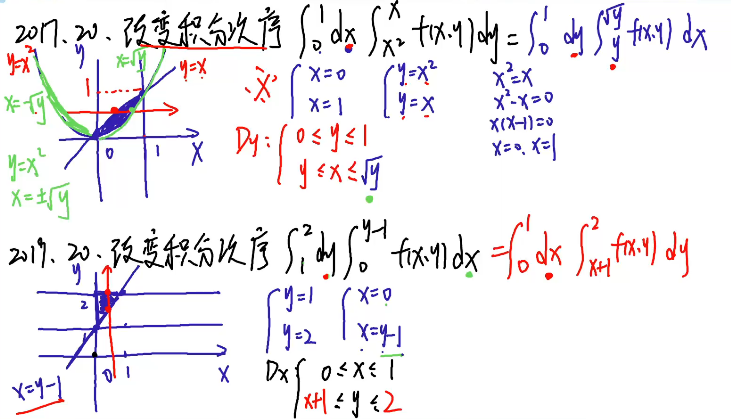 2017.20.改变积分次序 ∫₀¹ dx ∫_{x²}^{x} f(x,y) dy = ∫₀¹ dy ∫_{y}^{√y} f(x,y) dx
y=x²
y
x=√y
y=x
x=-√y
1
0
1
x
y=x²
x=±√y
"X"
{ x=0
x=1
{ y=x²
y=x
x²=x
x²-x=0
x(x-1)=0
x=0, x=1
Dy: { 0≤y≤1
y≤x≤√y
2019.20.改变积分次序 ∫₁² dy ∫₀^{y-1} f(x,y) dx = ∫₀¹ dx ∫_{x+1}^{2} f(x,y) dy
y
2
1
0
1
x
x=y-1
{ y=1
y=2
{ x=0
x=y-1
Dx { 0≤x≤1
x+1≤y≤2